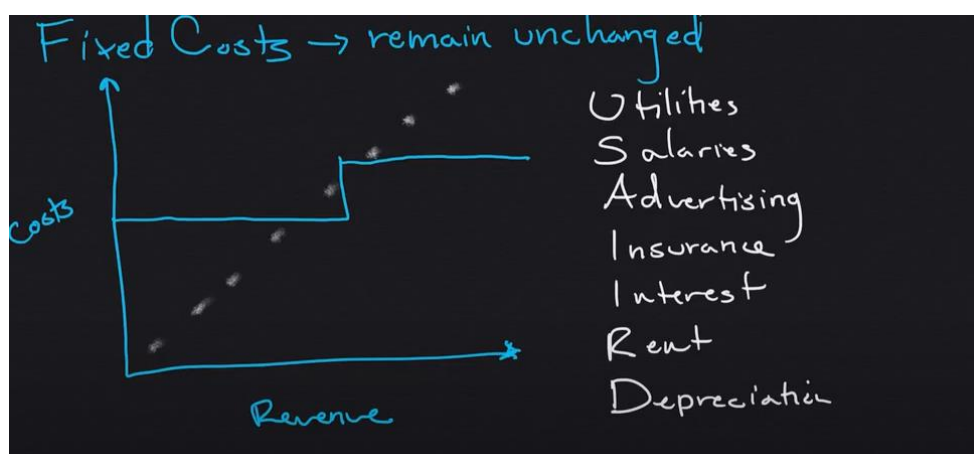 Fixed Costs → remain unchanged
Costs
Revenue
Utilities
Salaries
Advertising
Insurance
Interest
Rent
Depreciation